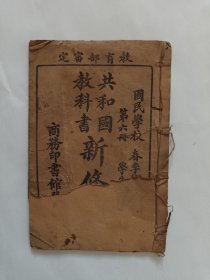 教育部審定
國民學校 春季始
第六冊 學生
共和國
教科書
新修
商務印書館